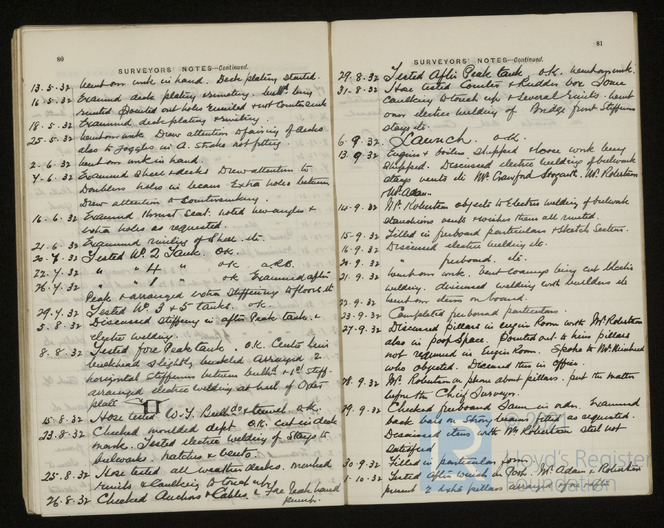 80
SURVEYORS' NOTES—Continued.
13.5.32 Went over work in hand. Deck plating started.
16.5.32 Examined deck plating & riveting. bulkhds being
riveted. Pointed out holes
18.5.32 Examined deck plating & riveting.
25.5.32 Went over work. Drew attention to fairing of decks
also to joggles in A. strake not fitting
2.6.32 Went over work in hand.
7.6.32 Examined shell & decks. Drew attention to
Doublers holes in beams. Extra holes between
Drew attention to Countersinking.
16.6.32 Examined thrust seat. noted new angles &
extra holes as requested.
21.6.32 Examined riveting of shell etc.
20.7.32 Tested No. 2 Tank. O.K.
22.7.32 " " 4 " O.K.
26.7.32 " " 1 " O.K. Examined after
Peak & arranged extra stiffening to floors etc
29.7.32 Tested No. 3 & 5 tanks. O.K.
5.8.32 Discussed stiffening in after Peak tank &
electric welding.
8.8.32 Tested fore Peak tank. O.K. Centre line
bulkhead slightly buckled. Arranged 2
horizontal stiffeners between bulkhd & 1st stiff.
arranged electric welding at heel of
plate
15.8.32 Hose tested W.T. Bulkhds & tunnel O.K.
23.8.32 Checked moulded depth O.K. cut in deck
mark. Tested electric welding of stays to
bulwarks. hatches & vents.
25.8.32 Hose tested all weather decks. marked
rivets & caulking to touch up.
26.8.32 Checked Anchors & Cables & Fore Peak hand
pump.
81
SURVEYORS' NOTES—Continued.
29.8.32 Tested After Peak tank O.K. Went over work.
31.8.32 Hose tested Counter & Rudder box. Some
caulking to touch up & several rivets. Went
over electric welding of Bridge front Stiffeners
stays etc.
6.9.32 Launch. O.K.
13.9.32 Engines & boilers shipped & loose work being
shipped. Discussed electric welding of bulwark
stays vents etc Mr. Crawford Mr. Robertson
Mr. Adam.
14.9.32 Mr. Robertson objects to Electric welding of bulwark
stanchions vents & wishes them all riveted.
15.9.32 Filled in freeboard particulars & Sketch Section.
16.9.32 Discussed electric welding etc.
20.9.32 " freeboard. etc.
21.9.32 Went over work. Vent coamings being cut electric
welding. discussed welding with builders etc
22.9.32 Went over items on board.
23.9.32 Completed freeboard particulars.
27.9.32 Discussed pillars in engine Room with Mr. Robertson
also in poop Space. Pointed out to him pillars
not required in Engine Room. Spoke to Mr.
who objected. Discussed this in office.
28.9.32 Mr. Robertson on phone about pillars. put the matter
before the Chief Surveyor.
29.9.32 Checked freeboard Same in order. Examined
back bars on Strong beams fitted as requested.
Discussed item with Mr Robertson still not
satisfied
30.9.32 Filled in particular form.
1.10.32 Tested after winch in Poop. Mr. Adam & Robertson
present 2 extra pillars arranged
Lloyd's Register
Foundation